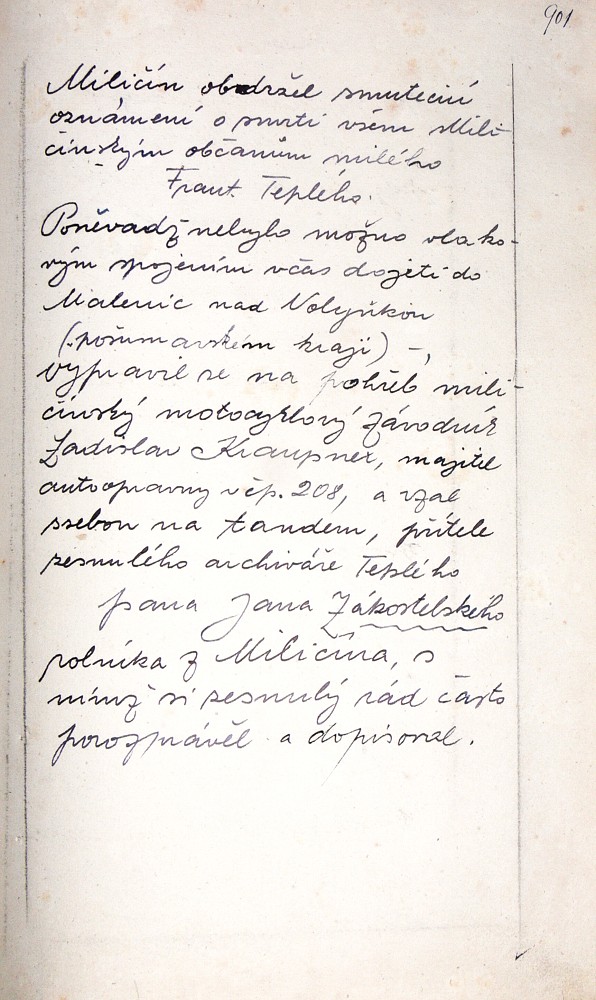 901
Miličín obdržel smuteční
oznámení o smrti všem Mili-
čínským občanům milého
Frant. Teplého.
Poněvadž nebylo možno vlako-
vým spojením včas dojeti do
Malenic nad Volyňkou
(.pošumavském kraji) -,
vypravil se na pohřeb mili-
čínský motocyklový závodník
Ladislav Kraupner, majitel
autoopravny v čp. 208, a vzal
ssebou na tandem, přítele
zesnulého archiváře Teplého
pana Jana Zákostelského
rolníka z Miličína, s
nímž si zesnulý rád často
porozprávěl a dopisoval.